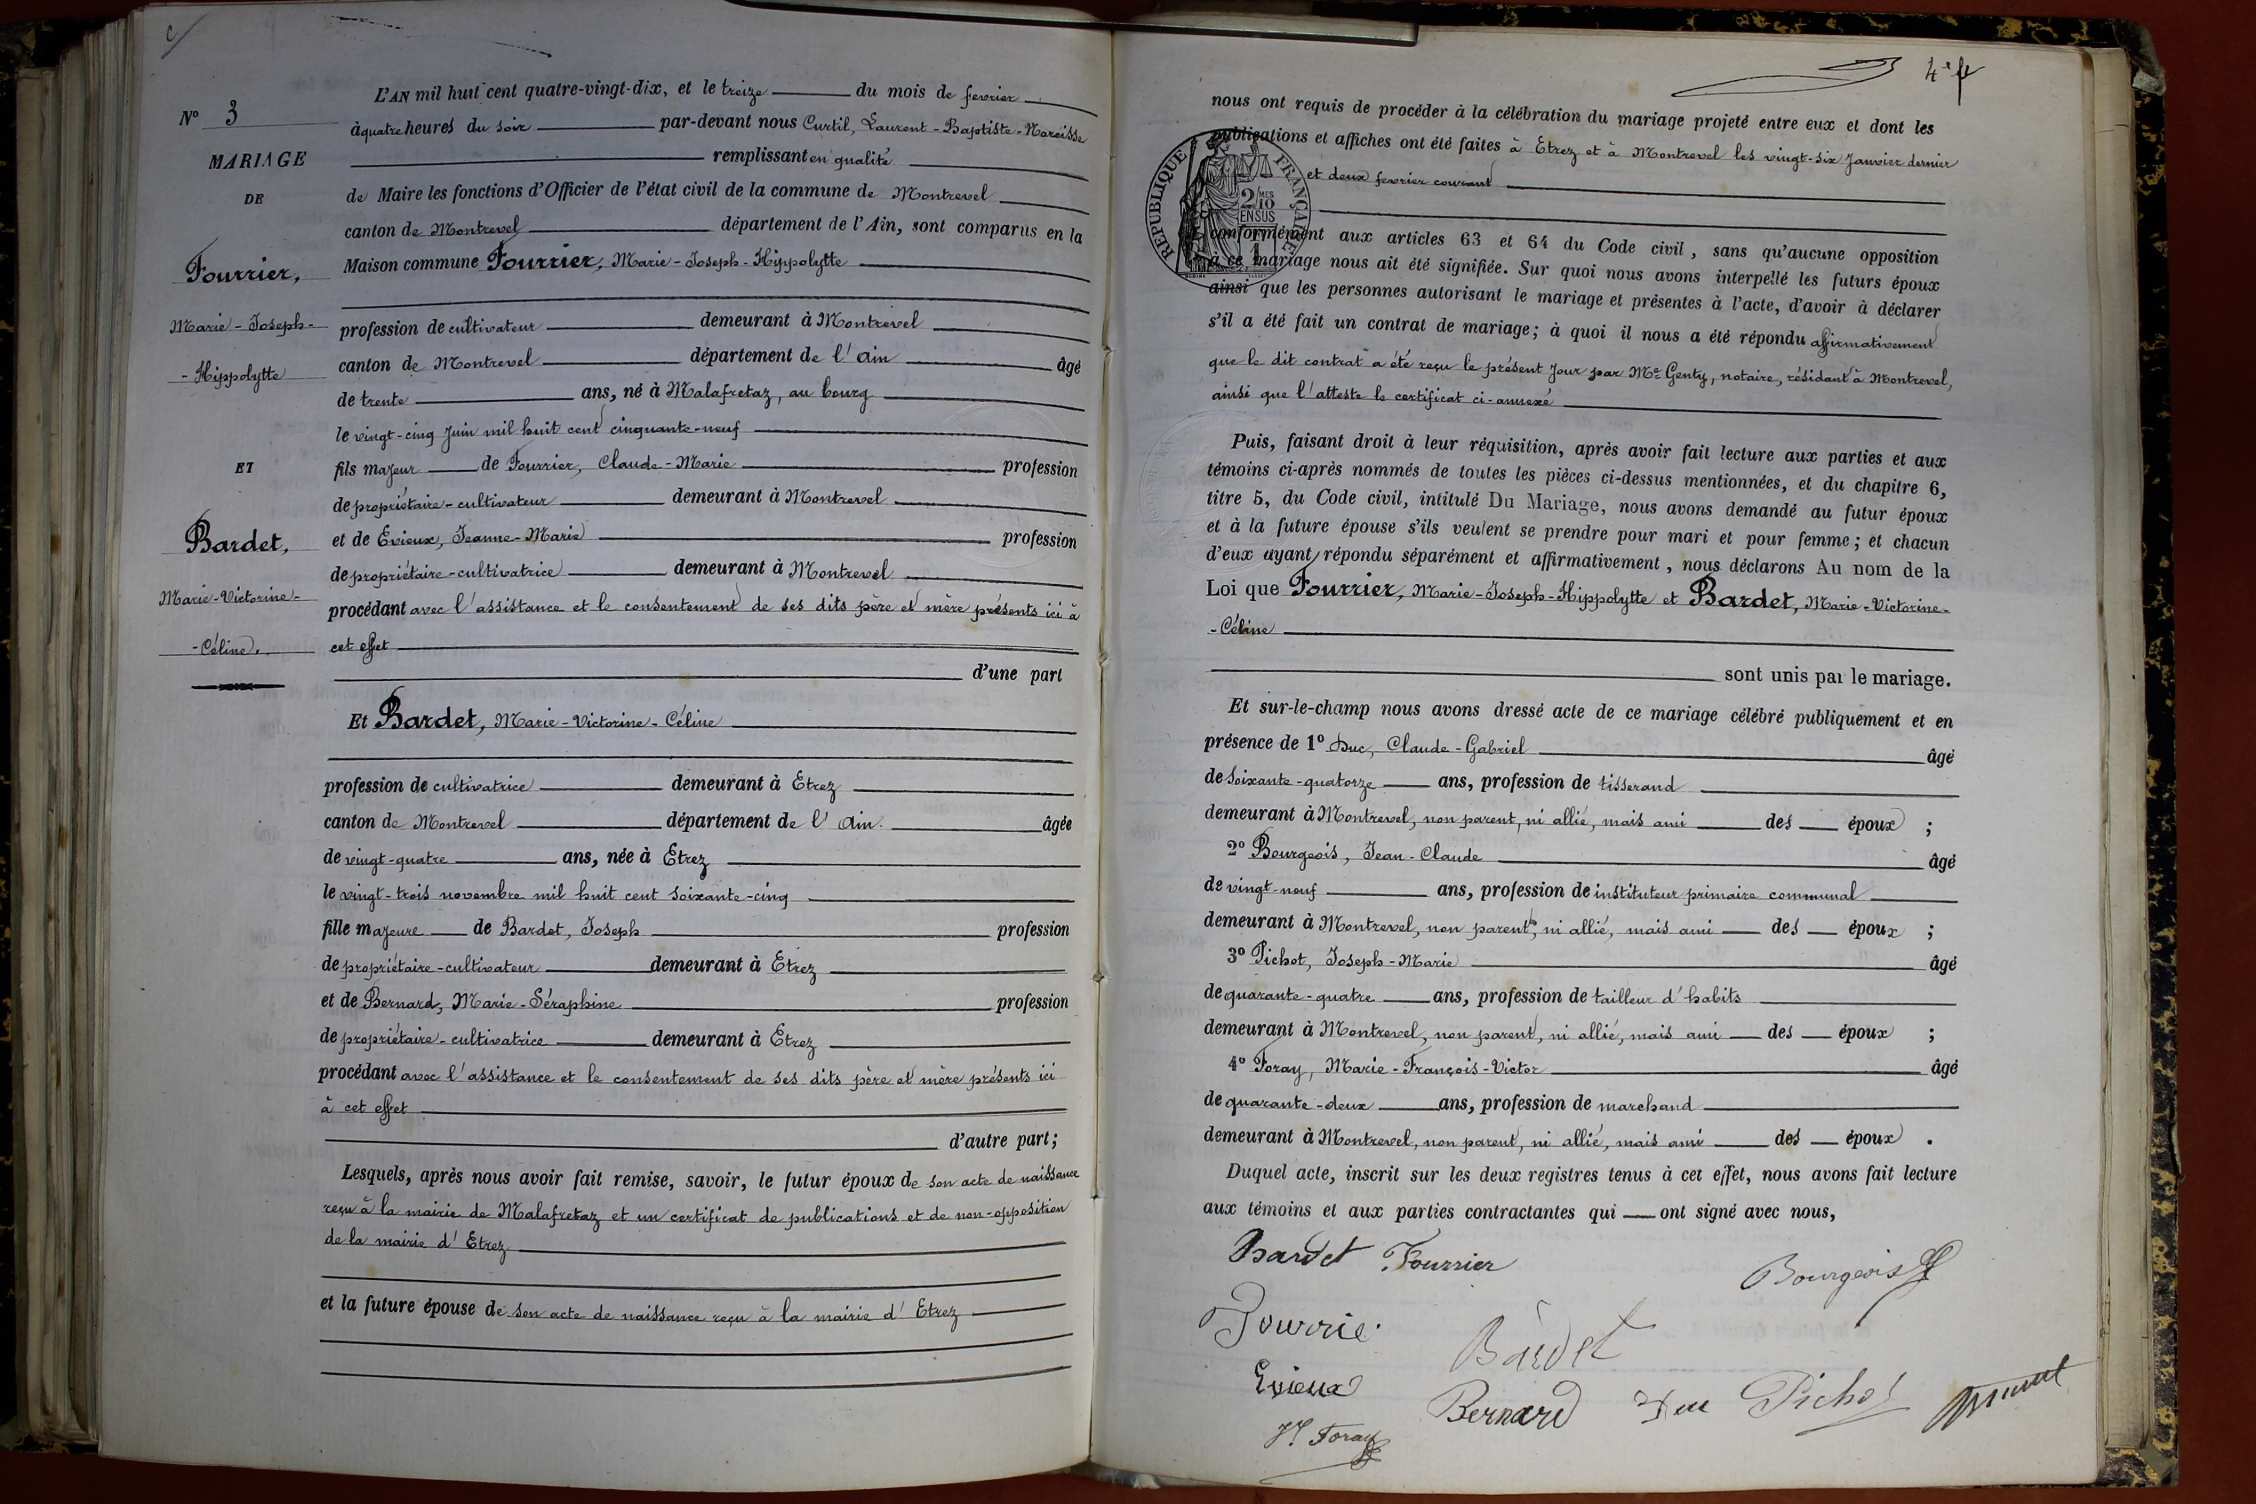 N° 3
MARIAGE
DE
Fourrier,
Marie-Joseph-
-Hippolytte
ET
Bardet,
Marie-Victorine-
-Céline.
L'AN mil huit cent quatre-vingt-dix, et le treize du mois de fevrier
à quatre heures du soir par-devant nous Curtil, Laurent-Baptiste-Narcisse
remplissant en qualité
de Maire les fonctions d'Officier de l'état civil de la commune de Montrevel
canton de Montrevel département de l'Ain, sont comparus en la
Maison commune Fourrier, Marie-Joseph-Hippolytte
profession de cultivateur demeurant à Montrevel
canton de Montrevel département de l'Ain âgé
de trente ans, né à Malafretaz, au bourg
le vingt-cinq Juin mil huit cent cinquante-neuf
fils majeur de Fourrier, Claude-Marie profession
de propriétaire-cultivateur demeurant à Montrevel
et de Evieux, Jeanne-Marie profession
de propriétaire-cultivatrice demeurant à Montrevel
procédant avec l'assistance et le consentement de ses dits père et mère présents ici à
cet effet
d'une part
Et Bardet, Marie-Victorine-Céline
profession de cultivatrice demeurant à Etrez
canton de Montrevel département de l'Ain. âgée
de vingt-quatre ans, née à Etrez
le vingt-trois novembre mil huit cent soixante-cinq
fille majeure de Bardet, Joseph profession
de propriétaire-cultivateur demeurant à Etrez
et de Bernard, Marie-Séraphine profession
de propriétaire-cultivatrice demeurant à Etrez
procédant avec l'assistance et le consentement de ses dits père et mère présents ici
à cet effet
d'autre part;
Lesquels, après nous avoir fait remise, savoir, le futur époux de son acte de naissance
reçu à la mairie de Malafretaz et un certificat de publications et de non-opposition
de la mairie d'Etrez
et la future épouse de son acte de naissance reçu à la mairie d'Etrez
4e f
nous ont requis de procéder à la célébration du mariage projeté entre eux et dont les
publications et affiches ont été faites à Etrez et à Montrevel les vingt-six Janvier dernier
et deux fevrier courant
RÉPUBLIQUE FRANÇAISE
2/10
MES
EN SUS
conformément aux articles 63 et 64 du Code civil, sans qu'aucune opposition
à ce mariage nous ait été signifiée. Sur quoi nous avons interpellé les futurs époux
ainsi que les personnes autorisant le mariage et présentes à l'acte, d'avoir à déclarer
s'il a été fait un contrat de mariage; à quoi il nous a été répondu affirmativement
que le dit contrat a été reçu le présent jour par Me Genty, notaire, résidant à Montrevel,
ainsi que l'atteste le certificat ci-annexé
Puis, faisant droit à leur réquisition, après avoir fait lecture aux parties et aux
témoins ci-après nommés de toutes les pièces ci-dessus mentionnées, et du chapitre 6,
titre 5, du Code civil, intitulé Du Mariage, nous avons demandé au futur époux
et à la future épouse s'ils veulent se prendre pour mari et pour femme; et chacun
d'eux ayant répondu séparément et affirmativement, nous déclarons Au nom de la
Loi que Fourrier, Marie-Joseph-Hippolytte et Bardet, Marie-Victorine-
-Céline
sont unis par le mariage.
Et sur-le-champ nous avons dressé acte de ce mariage célébré publiquement et en
présence de 1° Duc, Claude-Gabriel âgé
de soixante-quatorze ans, profession de tisserand
demeurant à Montrevel, non parent, ni allié, mais ami des époux ;
2° Bourgeois, Jean-Claude âgé
de vingt-neuf ans, profession de instituteur primaire communal
demeurant à Montrevel, non parent, ni allié, mais ami des époux ;
3° Pichot, Joseph-Marie âgé
de quarante-quatre ans, profession de tailleur d'habits
demeurant à Montrevel, non parent, ni allié, mais ami des époux ;
4° Foray, Marie-François-Victor âgé
de quarante-deux ans, profession de marchand
demeurant à Montrevel, non parent, ni allié, mais ami des époux .
Duquel acte, inscrit sur les deux registres tenus à cet effet, nous avons fait lecture
aux témoins et aux parties contractantes qui ont signé avec nous,
Bardet Fourrier Bourgeois
Fourrie
Bardet
Evieux
Bernard Duc Pichot
Foray